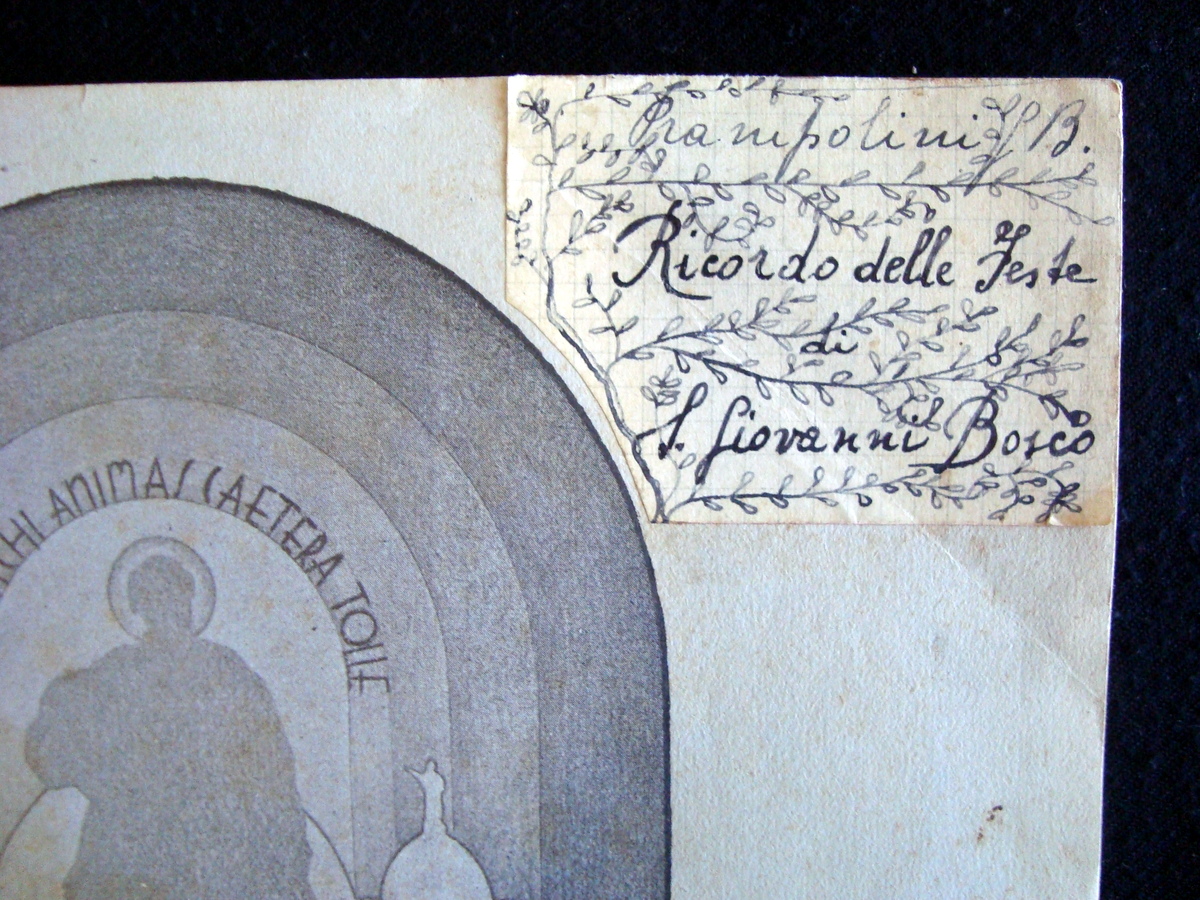 Prampolini G. B.
Ricordo delle Feste
di
S. Giovanni Bosco
ANIMAS CAETERA TOLLE